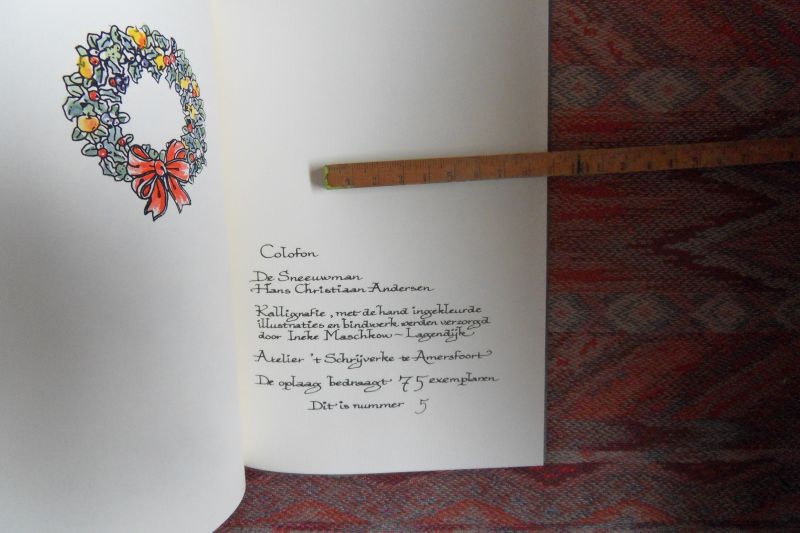 Colofon
De Sneeuwman
Hans Christiaan Andersen
Kalligrafie, met de hand ingekleurde
illustraties en bindwerk werden verzorgd
door Ineke Maschkow - Lagendijk
Atelier 't Schrijverke te Amersfoort
De oplaag bedraagt 75 exemplaren
Dit is nummer 5